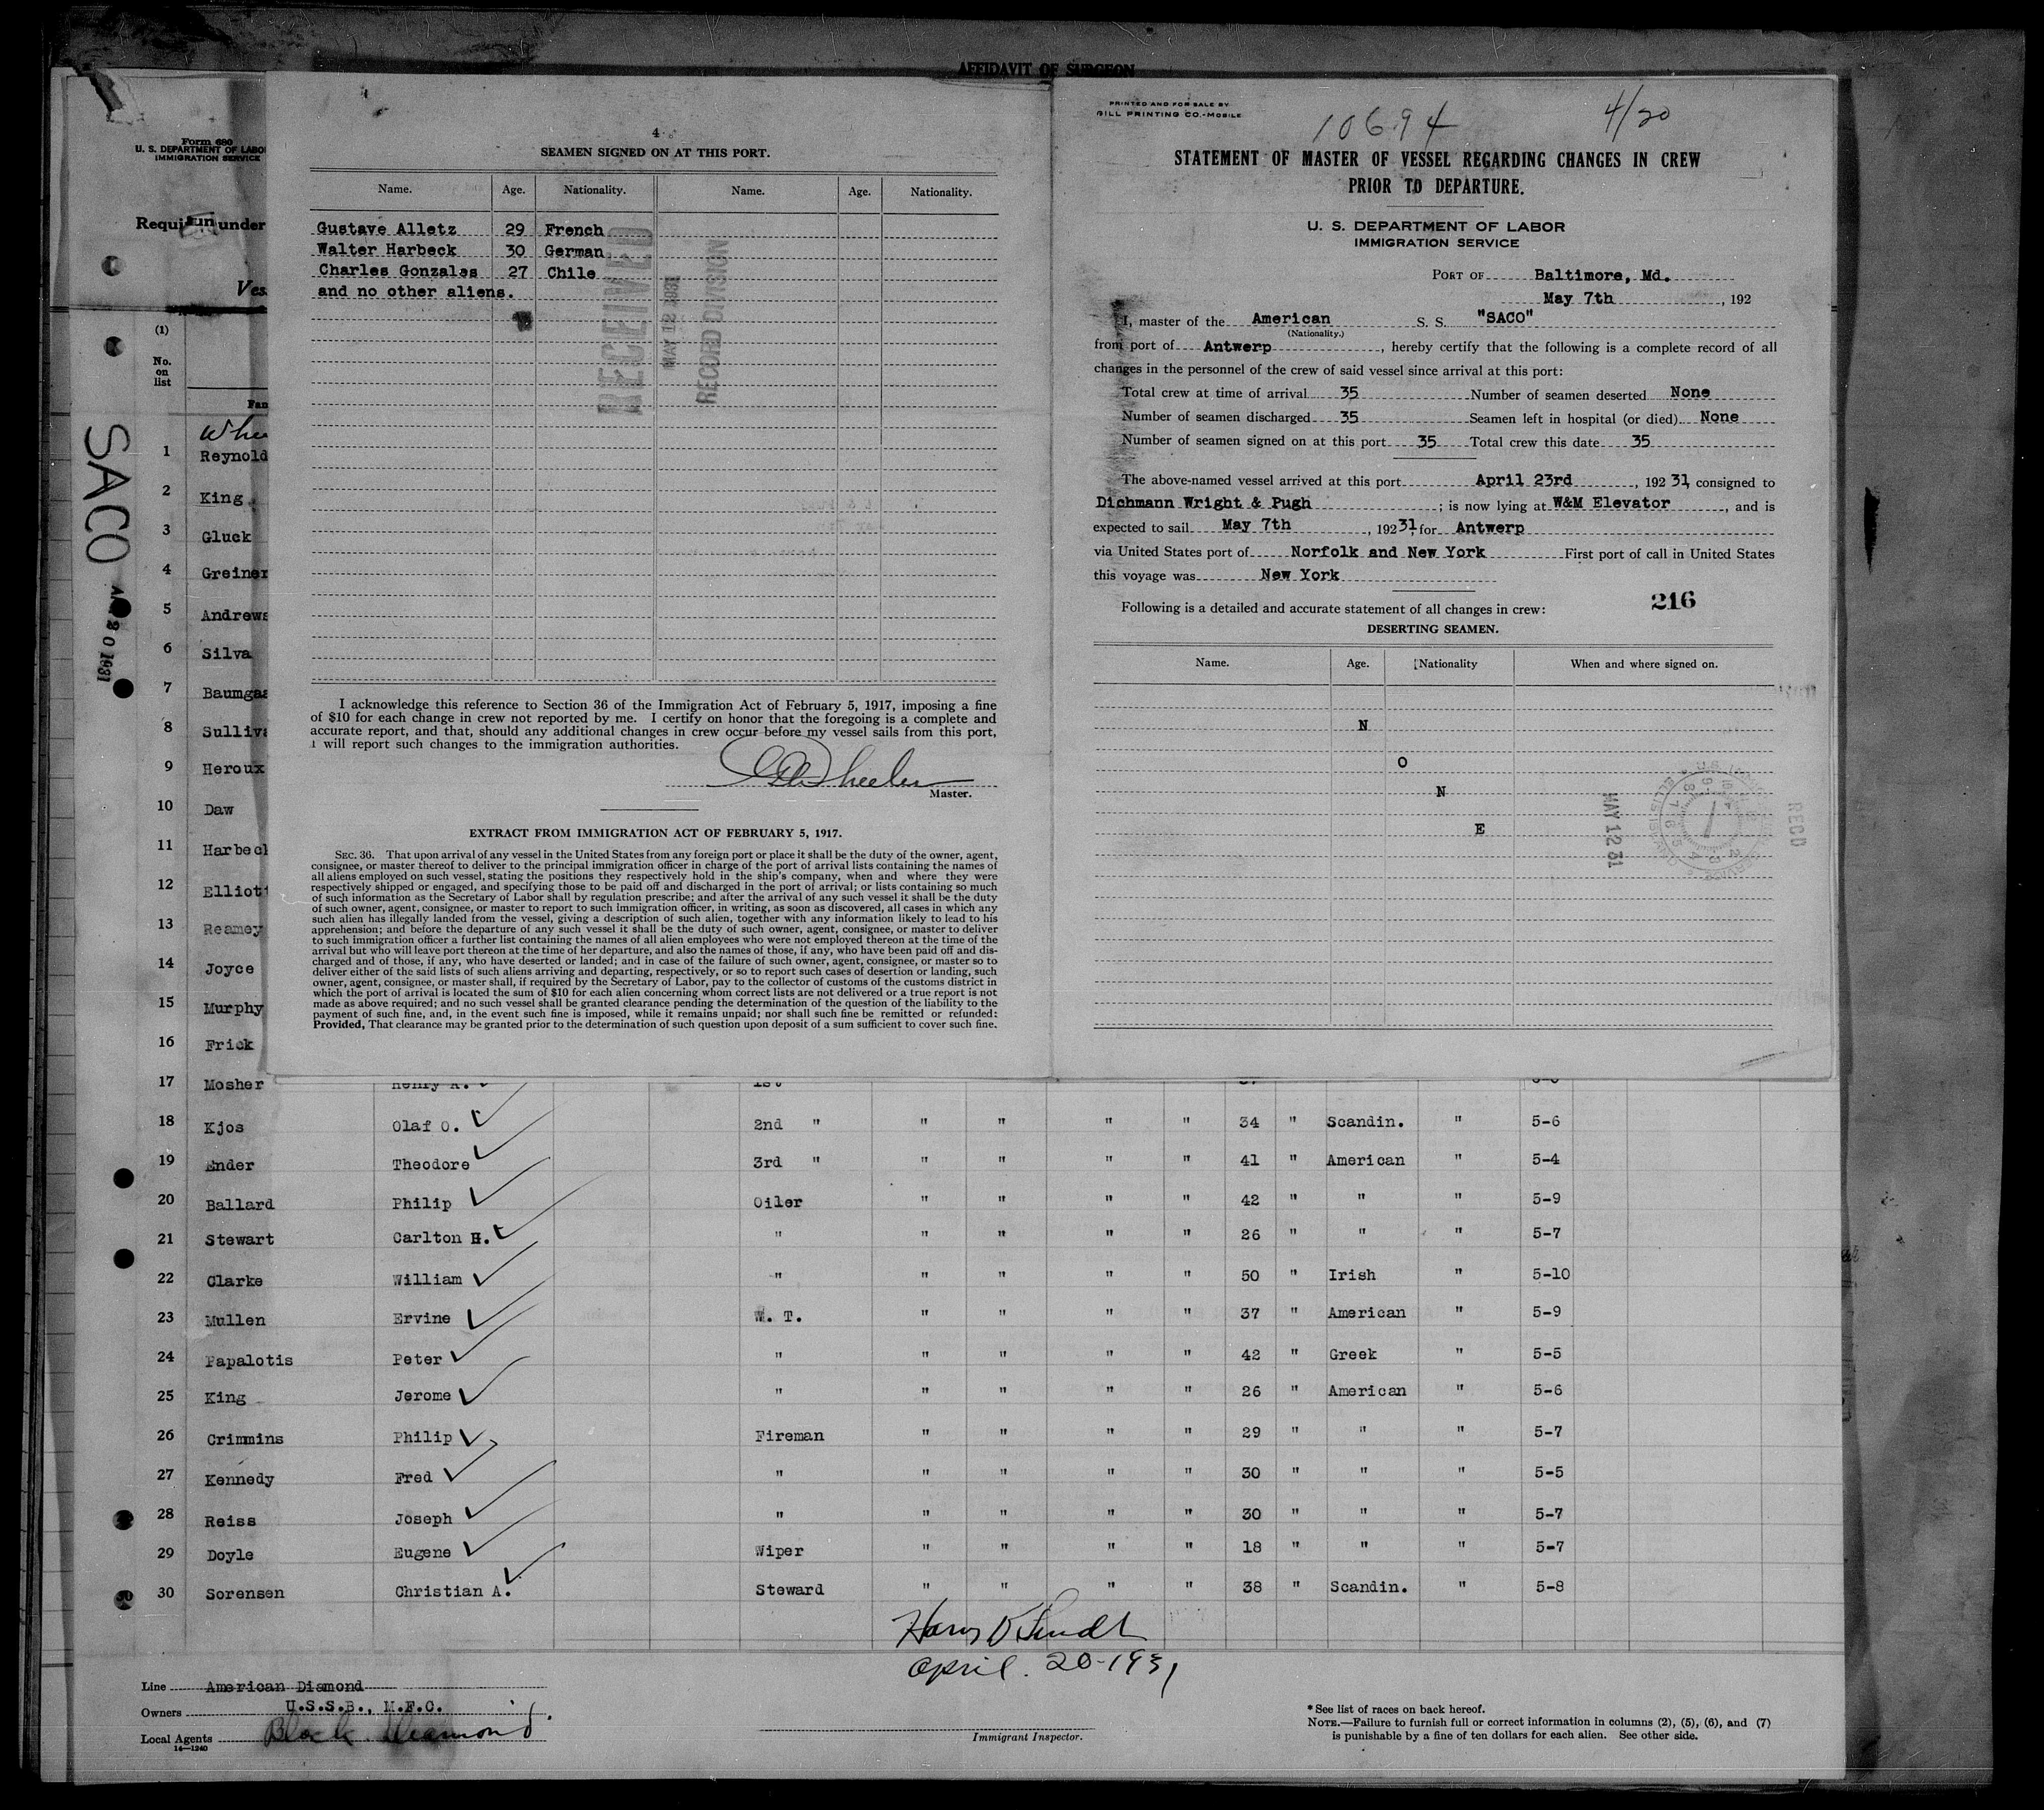 AFFIDAVIT OF SURGEON
Form 680
U. S. DEPARTMENT OF LABO
IMMIGRATION SERVICE
Requi under
Ves
(1)
No.
on
list
Fam
SACO
1931
4
SEAMEN SIGNED ON AT THIS PORT.
Name. Age. Nationality. Name. Age. Nationality.
Gustave Alletz 29 French
Walter Harbeck 30 German
Charles Gonzales 27 Chile
and no other aliens.
RECEIVED
MAY 12 1931
RECORD DIVISION
I acknowledge this reference to Section 36 of the Immigration Act of February 5, 1917, imposing a fine
of $10 for each change in crew not reported by me. I certify on honor that the foregoing is a complete and
accurate report, and that, should any additional changes in crew occur before my vessel sails from this port,
I will report such changes to the immigration authorities.
Wheeler
Master.
EXTRACT FROM IMMIGRATION ACT OF FEBRUARY 5, 1917.
SEC. 36. That upon arrival of any vessel in the United States from any foreign port or place it shall be the duty of the owner, agent,
consignee, or master thereof to deliver to the principal immigration officer in charge of the port of arrival lists containing the names of
all aliens employed on such vessel, stating the positions they respectively hold in the ship's company, when and where they were
respectively shipped or engaged, and specifying those to be paid off and discharged in the port of arrival; or lists containing so much
of such information as the Secretary of Labor shall by regulation prescribe; and after the arrival of any such vessel it shall be the duty
of such owner, agent, consignee, or master to report to such immigration officer, in writing, as soon as discovered, all cases in which any
such alien has illegally landed from the vessel, giving a description of such alien, together with any information likely to lead to his
apprehension; and before the departure of any such vessel it shall be the duty of such owner, agent, consignee, or master to deliver
to such immigration officer a further list containing the names of all alien employees who were not employed thereon at the time of the
arrival but who will leave port thereon at the time of her departure, and also the names of those, if any, who have been paid off and dis-
charged and of those, if any, who have deserted or landed; and in case of the failure of such owner, agent, consignee, or master so to
deliver either of the said lists of such aliens arriving and departing, respectively, or so to report such cases of desertion or landing, such
owner, agent, consignee, or master shall, if required by the Secretary of Labor, pay to the collector of customs of the customs district in
which the port of arrival is located the sum of $10 for each alien concerning whom correct lists are not delivered or a true report is not
made as above required; and no such vessel shall be granted clearance pending the determination of the question of the liability to the
payment of such fine, and, in the event such fine is imposed, while it remains unpaid; nor shall such fine be remitted or refunded:
Provided, That clearance may be granted prior to the determination of such question upon deposit of a sum sufficient to cover such fine.
PRINTED AND FOR SALE BY
GILL PRINTING CO.-MOBILE
10694 4/20
STATEMENT OF MASTER OF VESSEL REGARDING CHANGES IN CREW
PRIOR TO DEPARTURE.
U. S. DEPARTMENT OF LABOR
IMMIGRATION SERVICE
PORT OF Baltimore, Md.
May 7th, 192
I, master of the American S. S. "SACO"
(Nationality.)
from port of Antwerp, hereby certify that the following is a complete record of all
changes in the personnel of the crew of said vessel since arrival at this port:
Total crew at time of arrival 35 Number of seamen deserted None
Number of seamen discharged 35 Seamen left in hospital (or died) None
Number of seamen signed on at this port 35 Total crew this date 35
The above-named vessel arrived at this port April 23rd, 192 31, consigned to
Dichmann Wright & Pugh; is now lying at W&M Elevator, and is
expected to sail May 7th, 192 31, for Antwerp
via United States port of Norfolk and New York First port of call in United States
this voyage was New York
216
Following is a detailed and accurate statement of all changes in crew:
DESERTING SEAMEN.
Name. Age. Nationality When and where signed on.
N
O
N
E
MAY 12 31
REC'D
Whe
1 Reynold
2 King
3 Gluck
4 Greiner
5 Andrews
6 Silva
7 Baumga
8 Sulliva
9 Heroux
10 Daw
11 Harbec
12 Elliott
13 Reamey
14 Joyce
15 Murphy
16 Frick
17 Mosher Henry A. 1st
18 Kjos Olaf O. 2nd " " " " " 34 " Scandin. " 5-6
19 Ender Theodore 3rd " " " " " 41 " American " 5-4
20 Ballard Philip Oiler " " " " 42 " " " 5-9
21 Stewart Carlton H. " " " " " 26 " " " 5-7
22 Clarke William " " " " " 50 " Irish " 5-10
23 Mullen Ervine W. T. " " " " 37 " American " 5-9
24 Papalotis Peter " " " " " 42 " Greek " 5-5
25 King Jerome " " " " " 26 " American " 5-6
26 Crimmins Philip Fireman " " " " 29 " " " 5-7
27 Kennedy Fred " " " " " 30 " " " 5-5
28 Reiss Joseph " " " " " 30 " " " 5-7
29 Doyle Eugene Wiper " " " " 18 " " " 5-7
30 Sorensen Christian A. Steward " " " " 38 " Scandin. " 5-8
April. 20-1931
Line American Diamond
Owners U.S.S.B., M.F.C.
Local Agents Black Diamond
14—1240
Immigrant Inspector.
* See list of races on back hereof.
NOTE.—Failure to furnish full or correct information in columns (2), (5), (6), and (7)
is punishable by a fine of ten dollars for each alien. See other side.